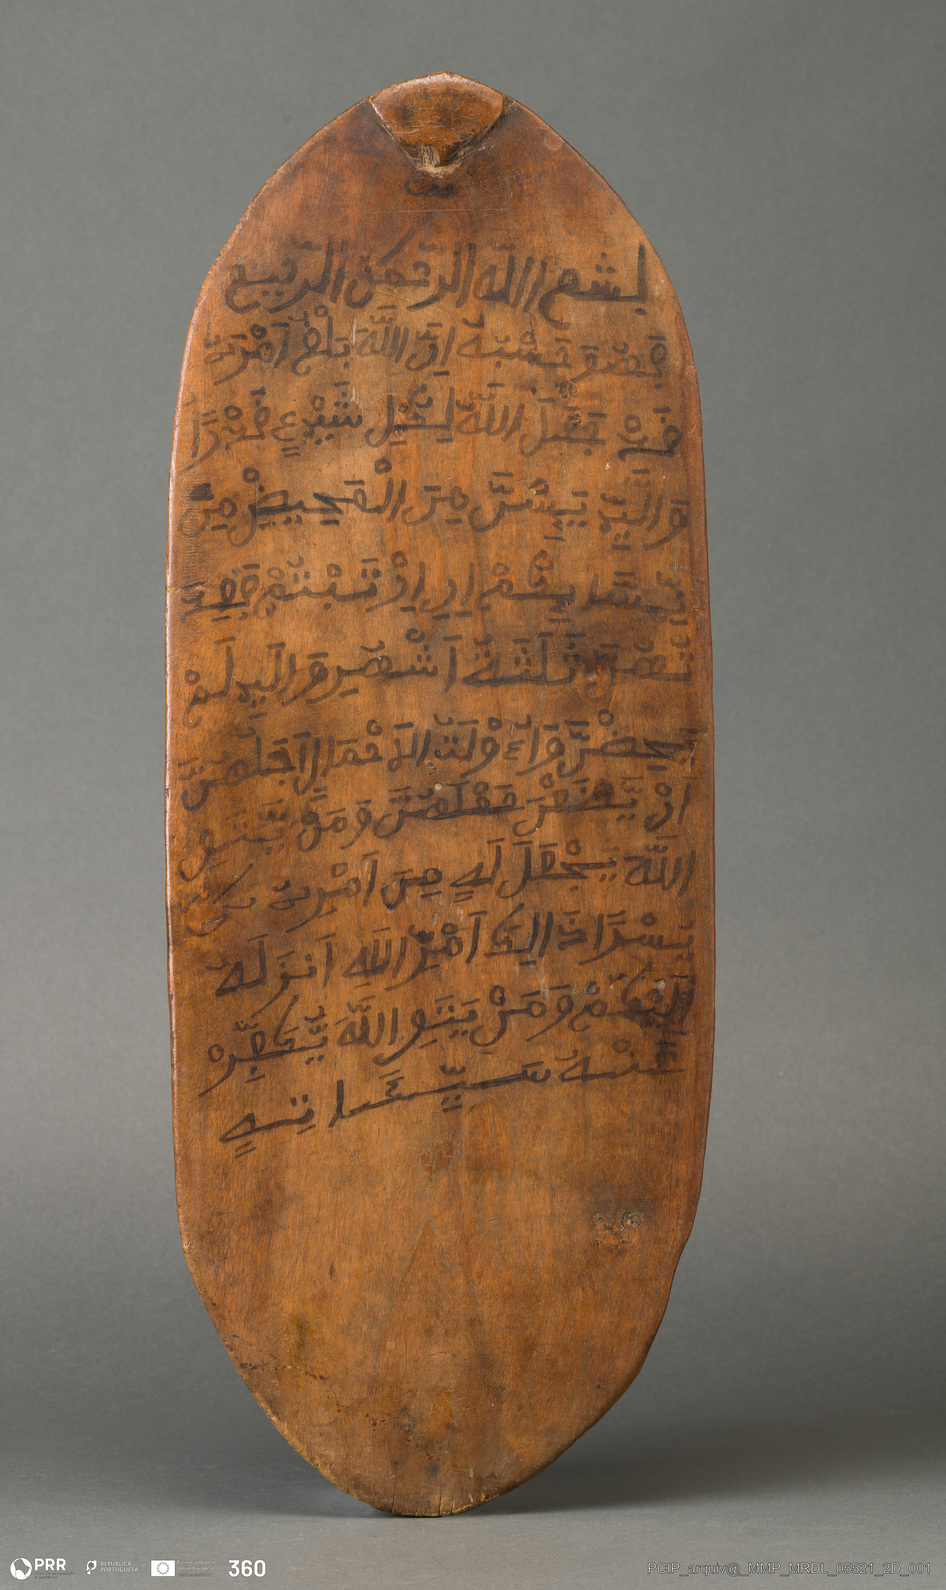 بسم الله الرحمن الرحيم
فهو حسبه ان الله بلغ امره
قد جعل الله لكل شيء قدرا
والي ييسن من المحيض من
نسايكم ان ارتبتم فعد
تهن ثلثة اشهر والي لم
يحضن واولت الاحمال اجلهن
ان يضعن حملهن ومن يتق
الله يجعل له من امره
يسرا ذالك امر الله انزله
اليكم ومن يتق الله يكفر
عنه سيئاته
PRR
REPÚBLICA PORTUGUESA
360
PCIP_arquiv@_MMP_MRDL_05521_2D_001